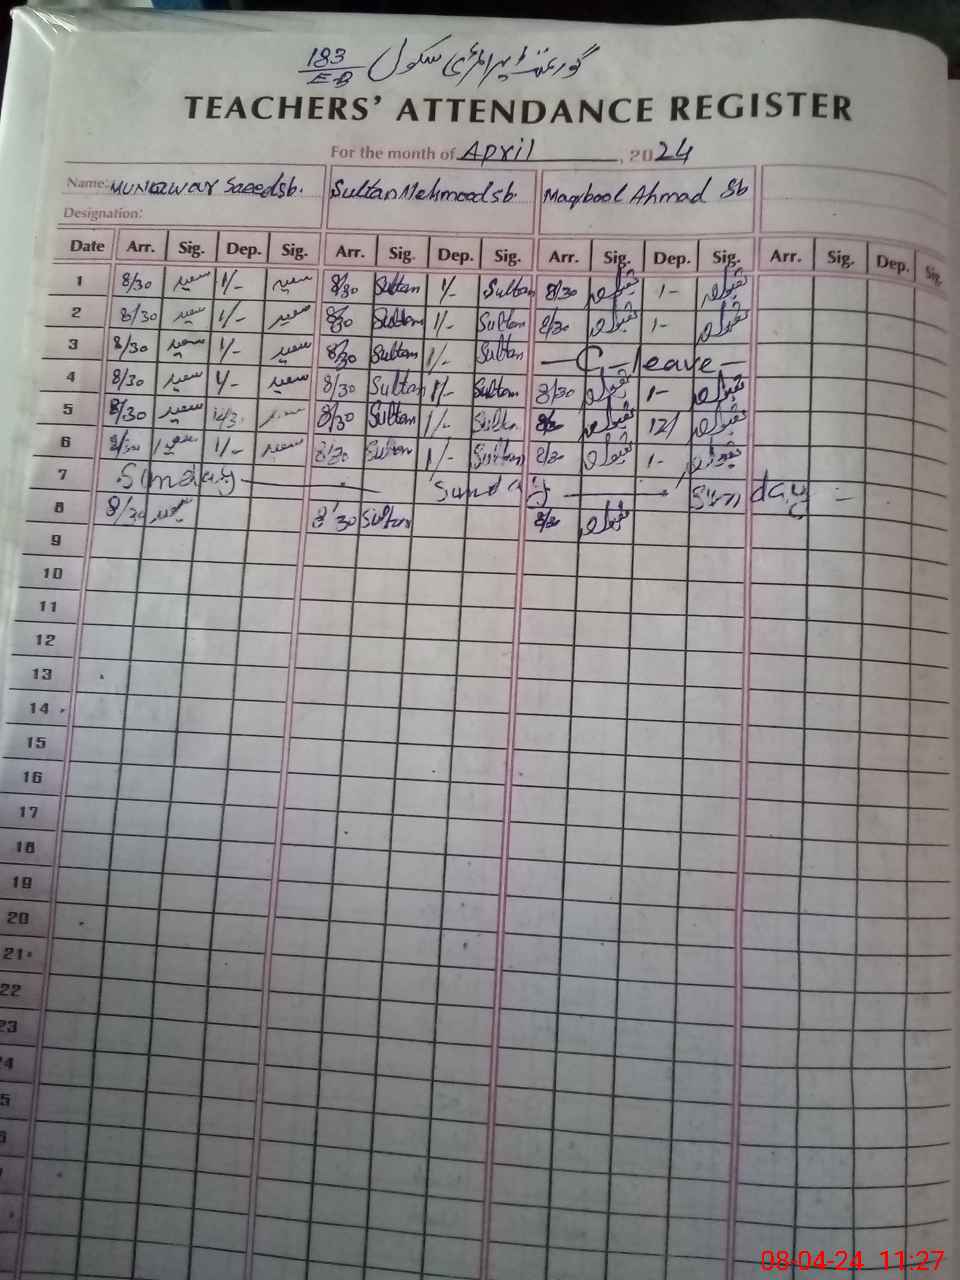 گورنمنٹ پرائمری سکول 183/EB
TEACHERS' ATTENDANCE REGISTER
For the month of April, 2024
Name: Munawar Saeed sb. Sultan Mehmood sb Maqbool Ahmad Sb
Designation:
Date Arr. Sig. Dep. Sig. Arr. Sig. Dep. Sig. Arr. Sig. Dep. Sig. Arr. Sig. Dep. Sig.
1 8/30 سعید 1/- سعید 8/30 Sultan 1/- Sultan 8/30 مقبول 1- مقبول
2 8/30 سعید 1/- سعید 8/30 Sultan 1/- Sultan 8/30 مقبول 1- مقبول
3 8/30 سعید 1/- سعید 8/30 Sultan 1/- Sultan — C-leave —
4 8/30 سعید 1/- سعید 8/30 Sultan 1/- Sultan 8/30 مقبول 1- مقبول
5 8/30 سعید سعید 8/30 Sultan 1/- Sultan 8/30 مقبول 12/ مقبول
6 8/30 سعید 1/- سعید 8/30 Sultan 1/- Sultan 8/30 مقبول 1- مقبول
7 Sunday — Sunday — Sunday —
8 8/30 سعید 8/30 Sultan 8/30 مقبول
9
10
11
12
13
14
15
16
17
18
19
20
21
22
23
4
5
08-04-24 11:27